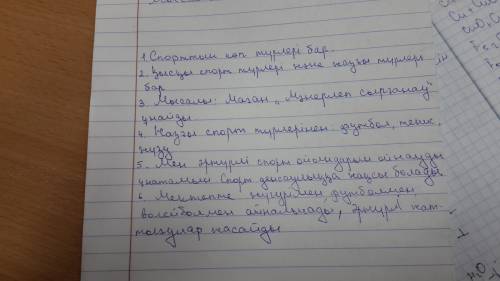 1. Спорттың көп түрлері бар.
2. Қысқы спорт түрлері және жазғы түрлері
бар
3. Мысалы: Маған "Мәнерлеп сырғанау"
ұнайды
4. Жазғы спорт түрлерінен футбол, теннис,
жүзу
5. Мен әртүрлі спорт ойындарын ойнауды
ұнатамын. Спорт денсаулыққа жақсы болады
6. Мектепте жүгірумен, футболмен,
волейболмен айналысады, әртүрлі жат-
тығулар жасайды
Cu
H₂O